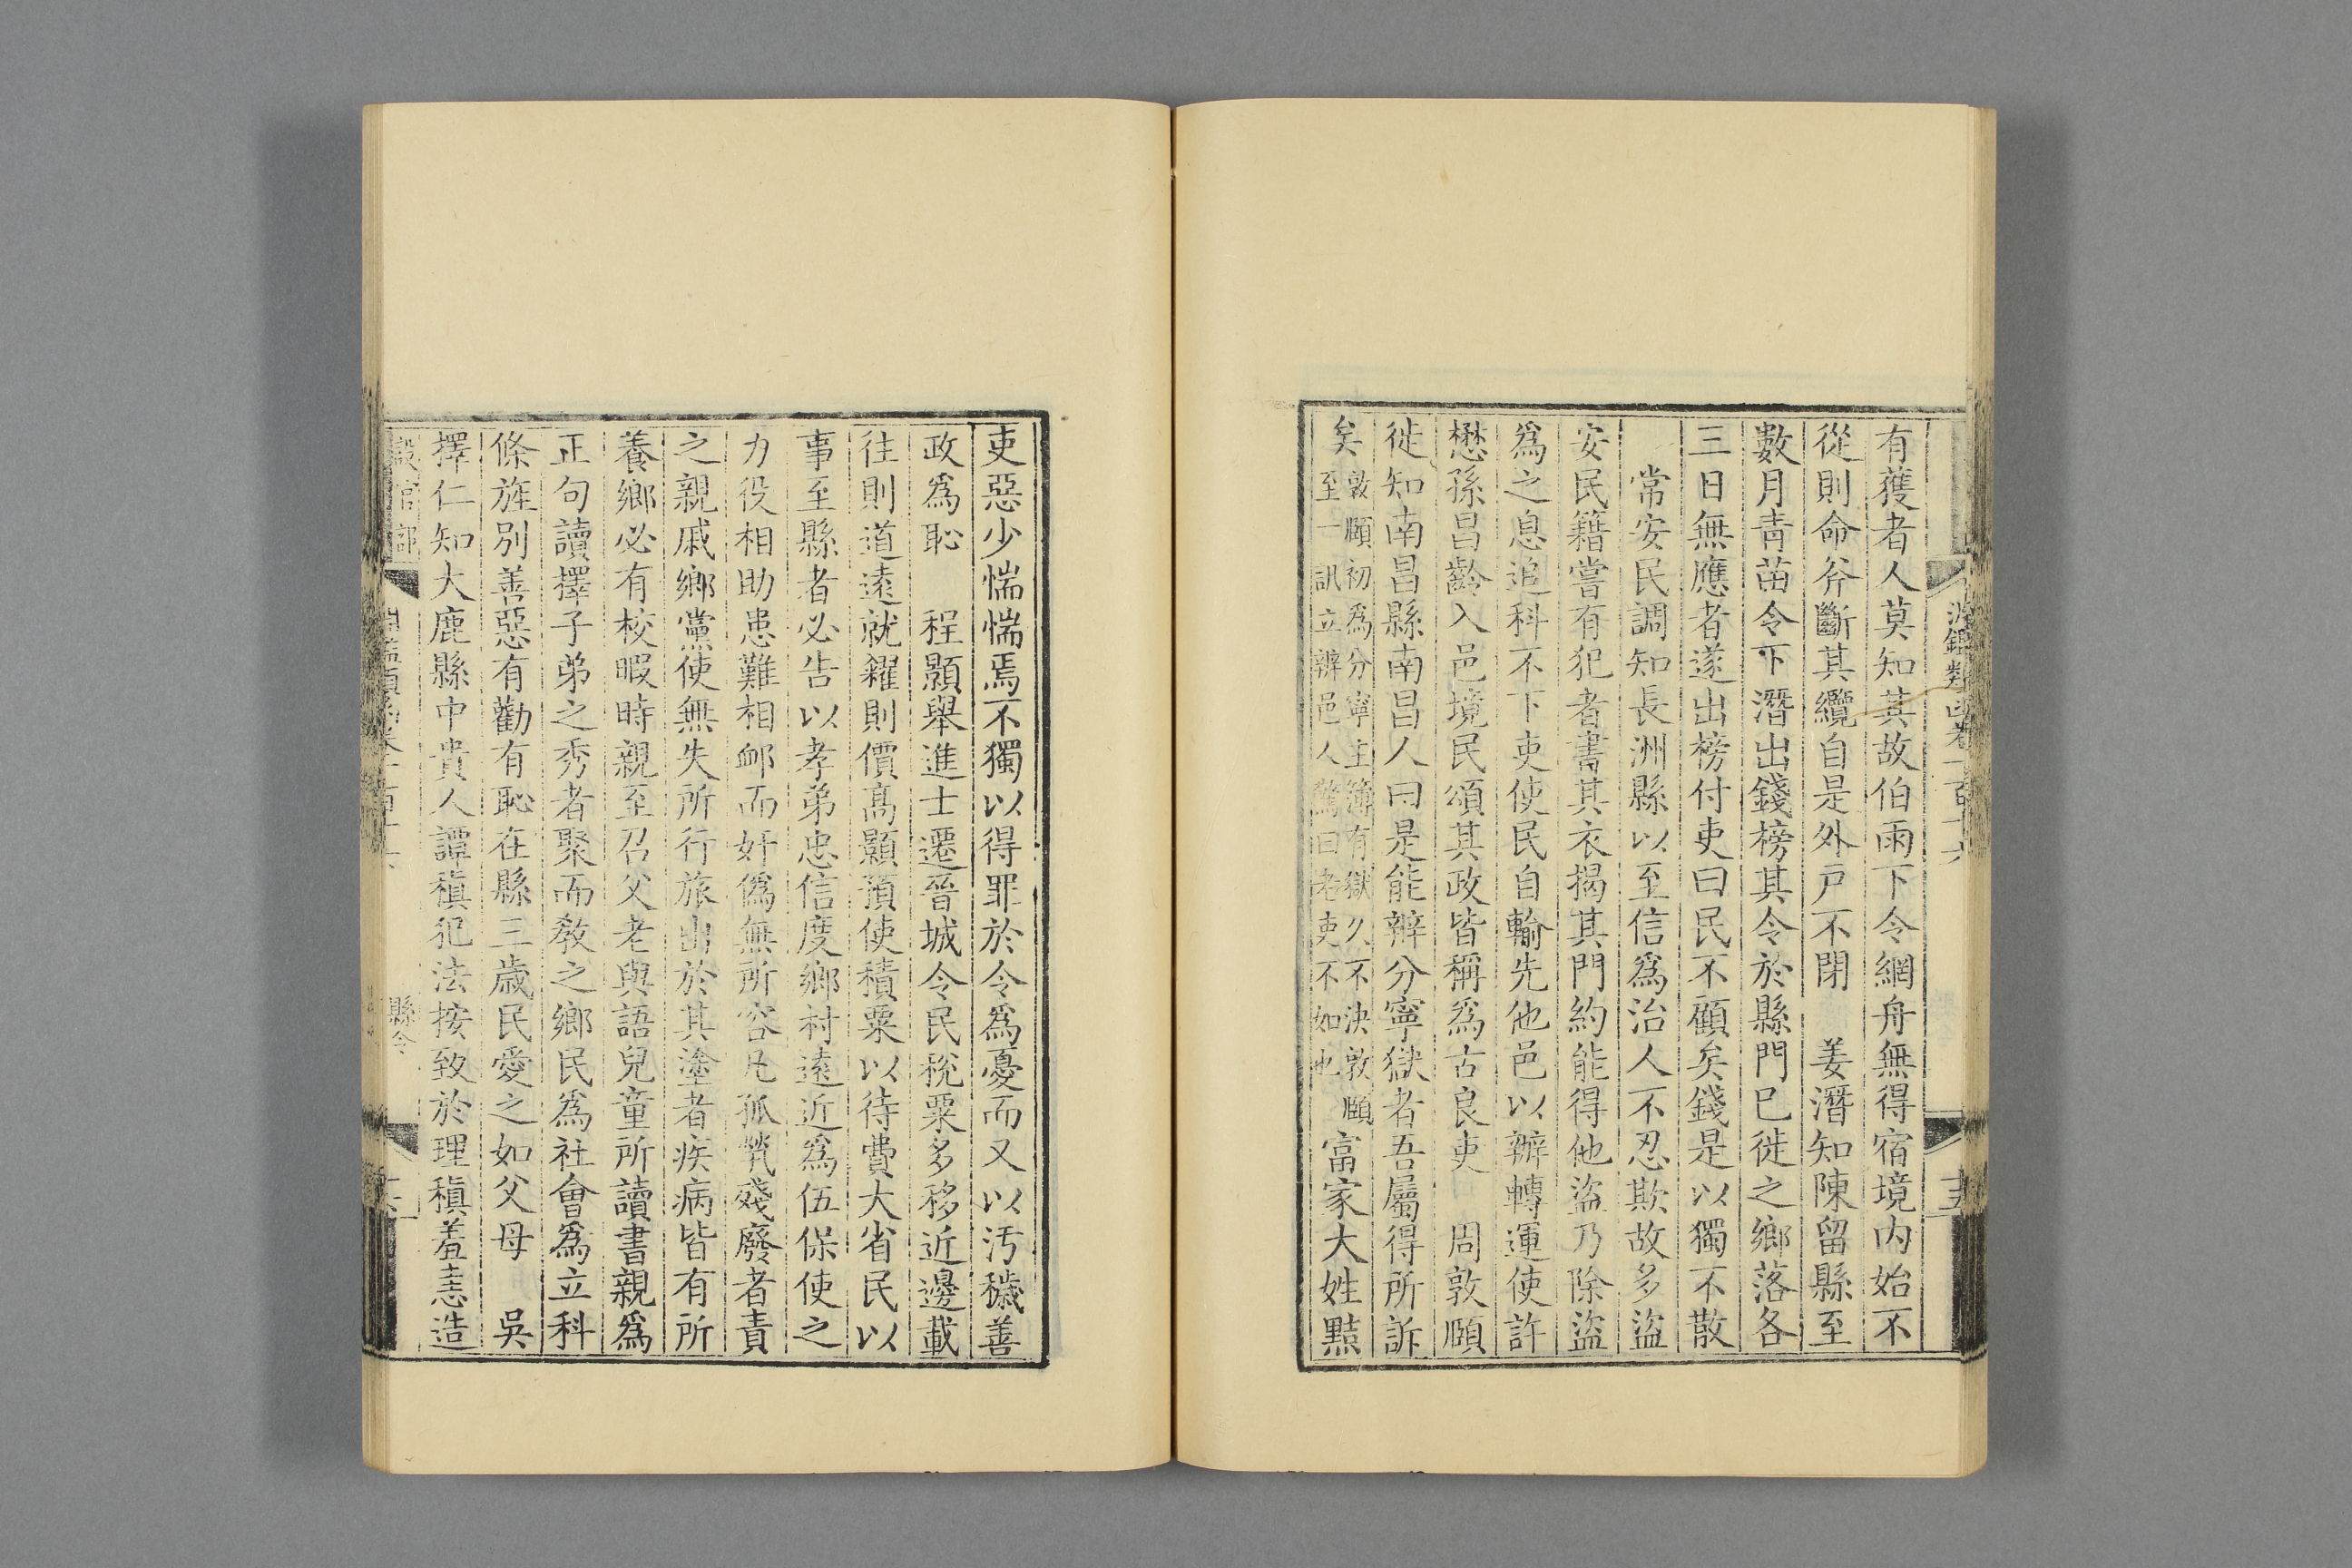 有獲者人莫知其故伯雨下令網舟無得宿境内始不
從則命斧斷其纜自是外戸不閉　姜潛知陳留縣至
數月青苗令下潛出錢榜其令於縣門巳徙之鄉落各
三日無應者遂出榜付吏曰民不願矣錢是以獨不散
常安民調知長洲縣以至信爲治人不忍欺故多盜
安民籍嘗有犯者書其衣揭其門約能得他盜乃除盜
爲之息追科不下吏使民自輸先他邑以辦轉運使許
懋孫昌齡入邑境民頌其政皆稱爲古良吏　周敦頤
徙知南昌縣南昌人曰是能辨分寧獄者吾屬得所訴
矣敦頤初爲分寧主簿有獄久不決敦頤
至一訊立辨邑人驚曰老吏不如也
富家大姓黠
吏惡少惴惴焉不獨以得罪於令爲憂而又以汚穢善
政爲恥　程顥舉進士遷晉城令民稅粟多移近邊載
往則道遠就糴則價高顥預使積粟以待費大省民以
事至縣者必告以孝弟忠信度鄉村遠近爲伍保使之
力役相助患難相卹而奸僞無所容凡孤煢殘廢者責
之親戚鄉黨使無失所行旅出於其塗者疾病皆有所
養鄉必有校暇時親至召父老與語兒童所讀書親爲
正句讀擇子弟之秀者聚而敎之鄉民爲社會爲立科
條旌別善惡有勸有恥在縣三歲民愛之如父母　吳
擇仁知大鹿縣中貴人譚稹犯法按致於理稹羞恚造
縣令